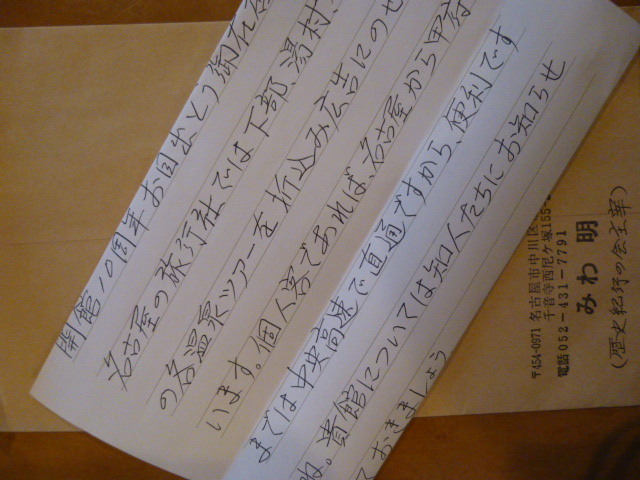 開館10周年お目出とう御在
名古屋の旅行社では下部、湯村、
の各温泉ツアーを折込み広告にのせ
います。個人客であれば、名古屋から甲府
までは中央高速で直通ですから、便利です
ね。貴館については知人たちにお知らせ
ておきましょう
〒454-0971 名古屋市中川区
千音寺西尼ケ塚155-
電話052-431-7791
みわ 明
(歴史紀行の会主宰)